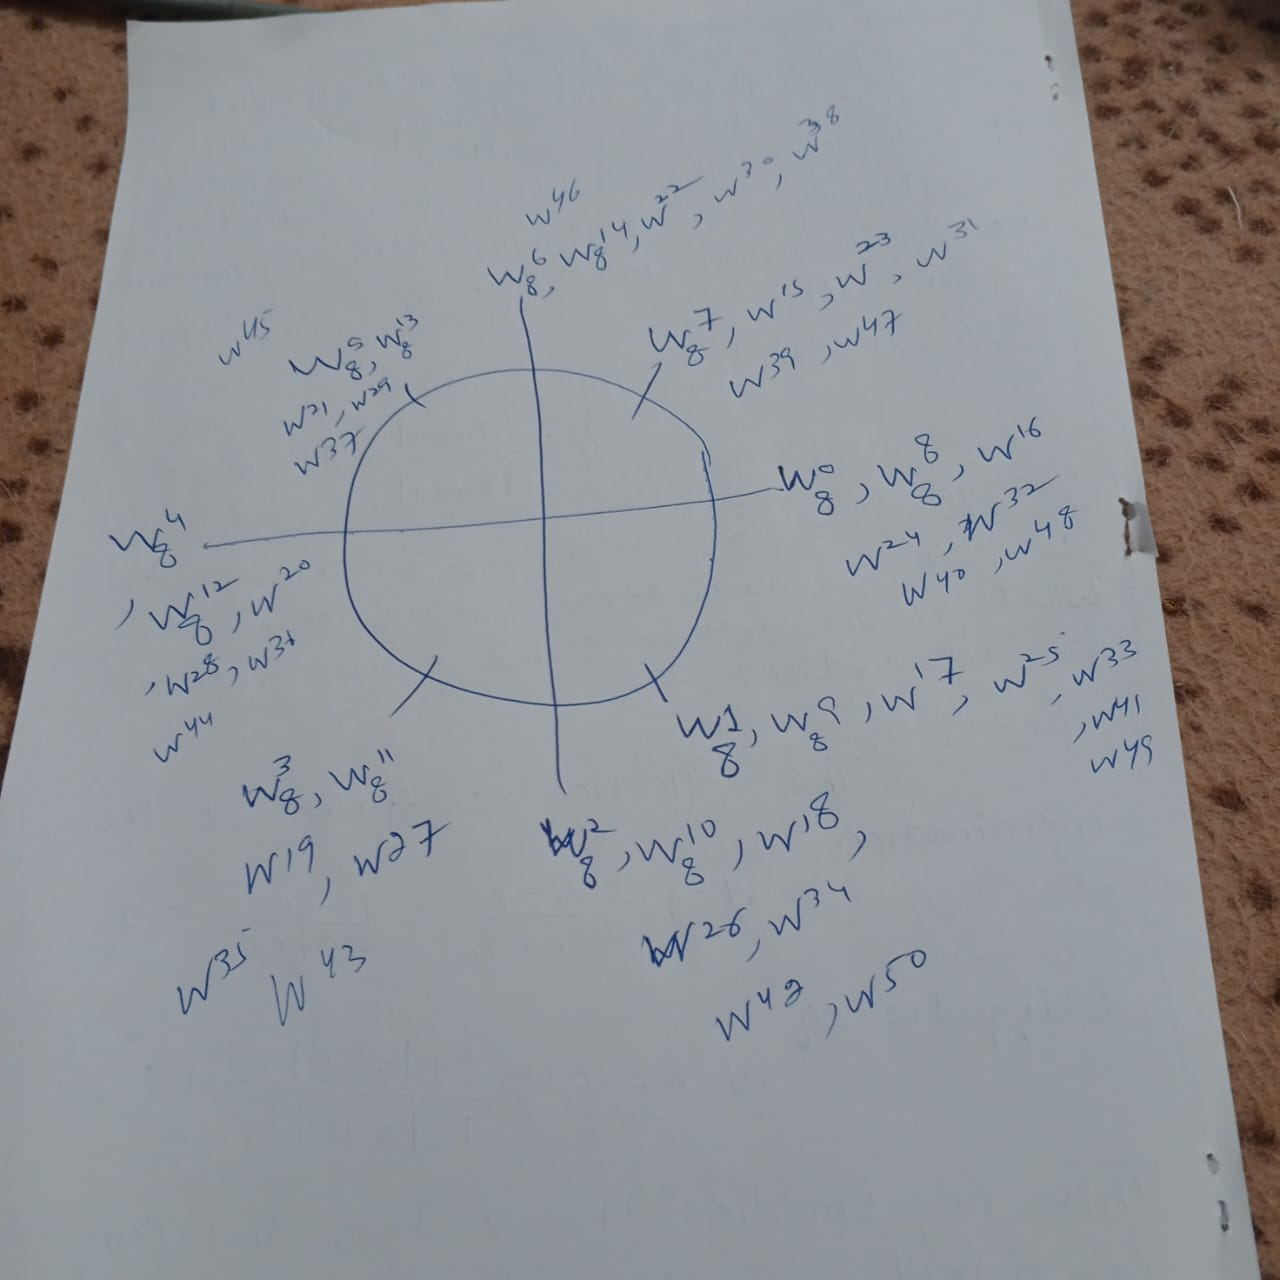 W^46
W_8^6, W_8^14, W^22, W^30, W^38
W_8^7, W^15, W^23, W^31
W^39, W^47
W^45
W_8^5, W_8^13
W^21, W^29
W^37
W_8^0, W_8^8, W^16
W^24, W^32
W^40, W^48
W_8^4
, W_8^12, W^20
, W^28, W^36
W^44
W_8^1, W_8^9, W^17, W^25, W^33
, W^41
W^49
W_8^3, W_8^11
W^19, W^27
W^35 W^43
W_8^2, W_8^10, W^18,
W^26, W^34
W^42, W^50